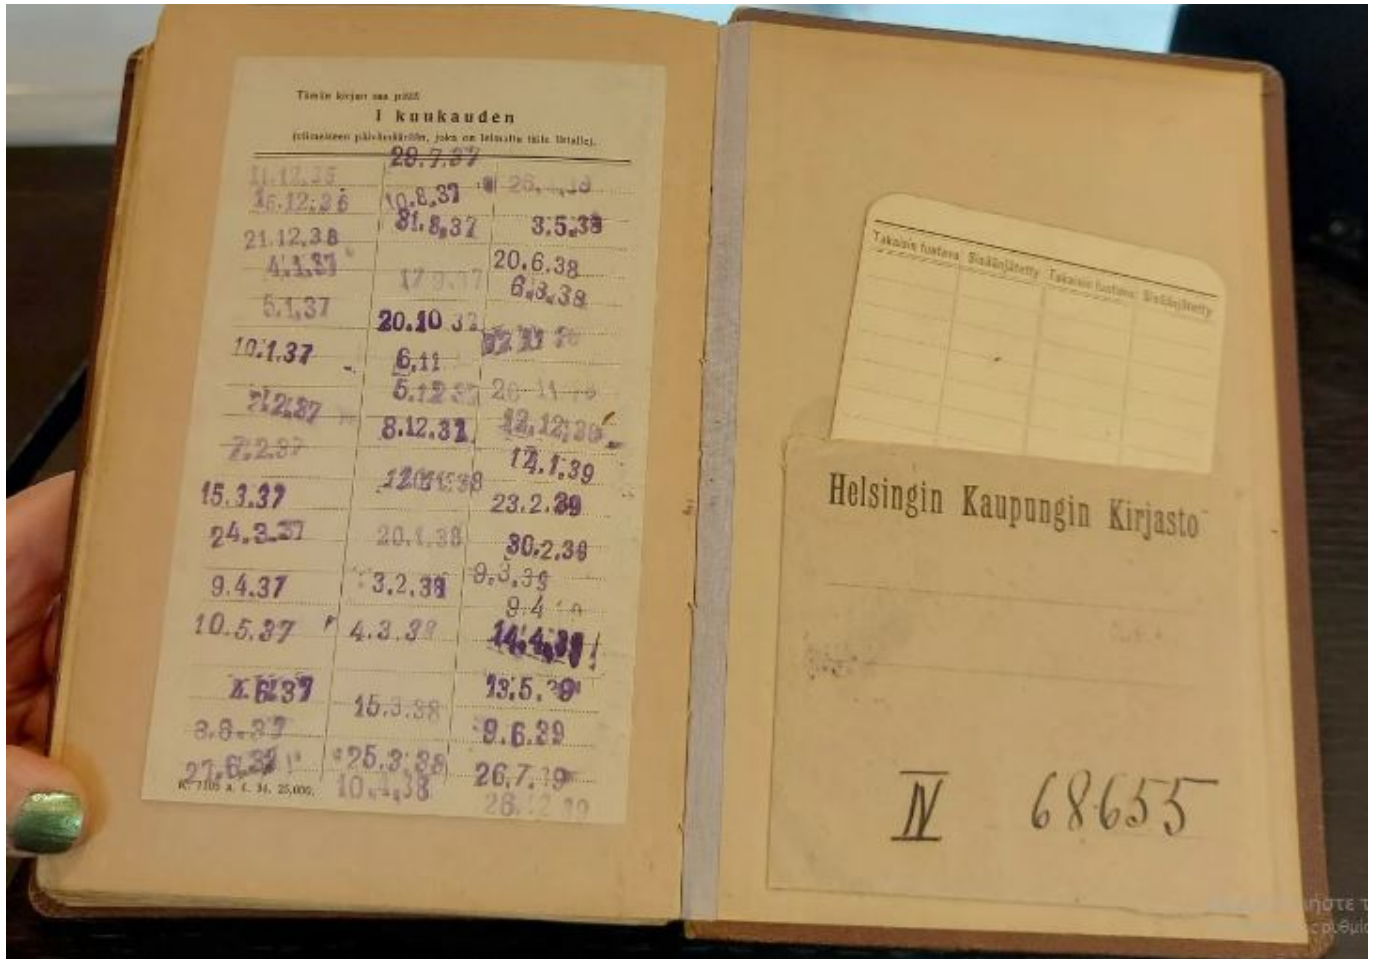 Tämän kirjan saa pitää
1 kuukauden
(viimeiseen päivämäärään, joka on leimattu tälle listalle).
29.7.37
11.12.36
16.12.36
21.12.38
4.1.37
5.1.37
10.1.37
2.2.37
7.2.37
15.3.37
24.3.37
9.4.37
10.5.37
4.6.37
27.6.37
10.8.37
31.8.37
17.9.37
20.10.37
6.11
5.12.37
8.12.37
20.1.38
3.2.38
4.3.38
15.3.38
25.3.38
10.4.38
3.5.38
20.6.38
6.8.38
12.12.38
14.1.39
23.2.39
30.2.39
9.3.39
9.4
14.4.39
13.5.39
9.6.39
26.7.39
28.12.39
25,000.
Takaisin tuotava Sisäänjätetty Takaisin tuotava Sisäänjätetty
Helsingin Kaupungin Kirjasto
IV 68655